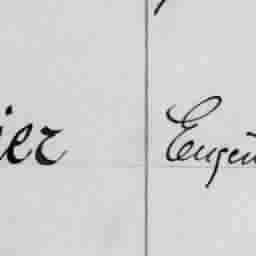 ier Eugen